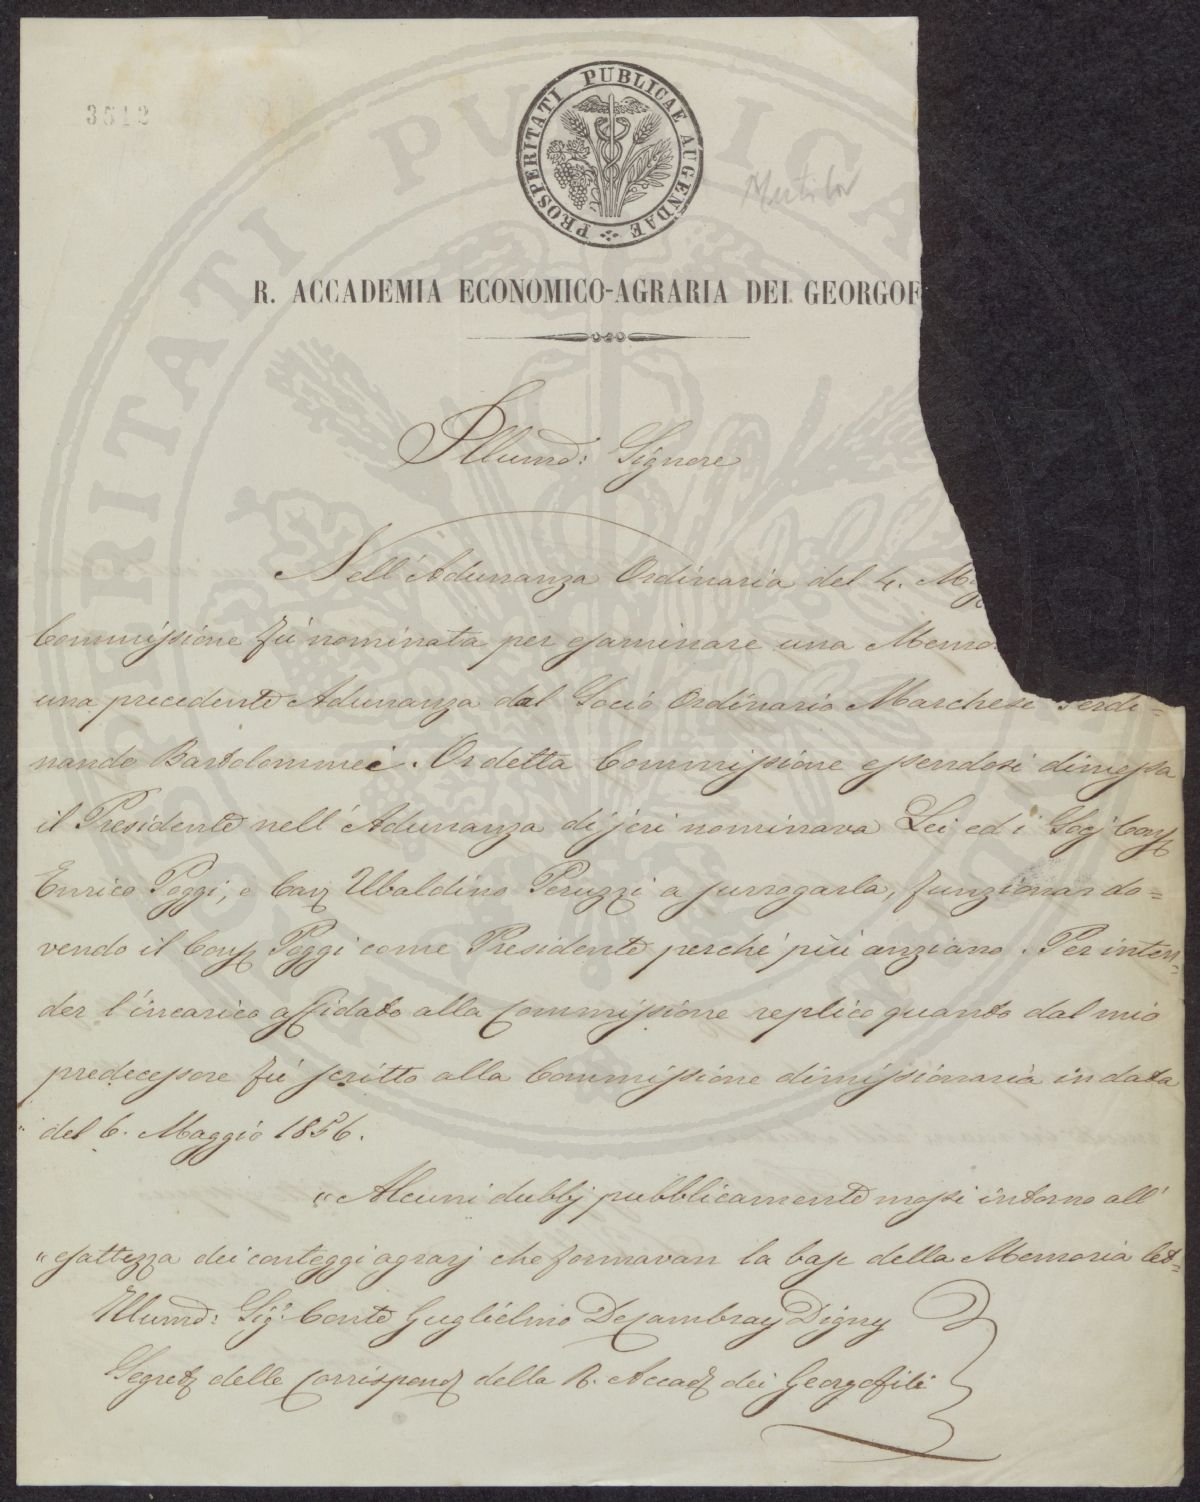 3512
PROSPERITATI PUBLICAE AUGENDAE
R. ACCADEMIA ECONOMICO-AGRARIA DEI GEORGOF
Illumo: Signore
Nell'Adunanza Ordinaria del 4. Mag
Commissione fù nominata per esaminare una Memo
una precedente Adunanza dal Socio Ordinario Marchese Ferdi=
nando Bartolommei. Or detta Commissione essendosi dimessa
il Presidente nell'Adunanza di jeri nominava Lei ed i Socj Cons
Enrico Poggi, e Cav Ubaldino Peruzzi a surrogarla, funzionar do=
vendo il Cons Poggi come Presidente perché più anziano. Per inten=
der l'incarico affidato alla Commissione replico quanto dal mio
predecessore fù scritto alla Commissione dimissionaria in data
del 6. Maggio 1856.
"Alcuni dubbj pubblicamente mossi intorno all'
"esattezza dei conteggi agrarj che formavan la base della Memoria let=
Illumo: Sigr Conte Guglielmo DeCambray Digny
Segret delle Corrispond della R. Accad dei Georgofili